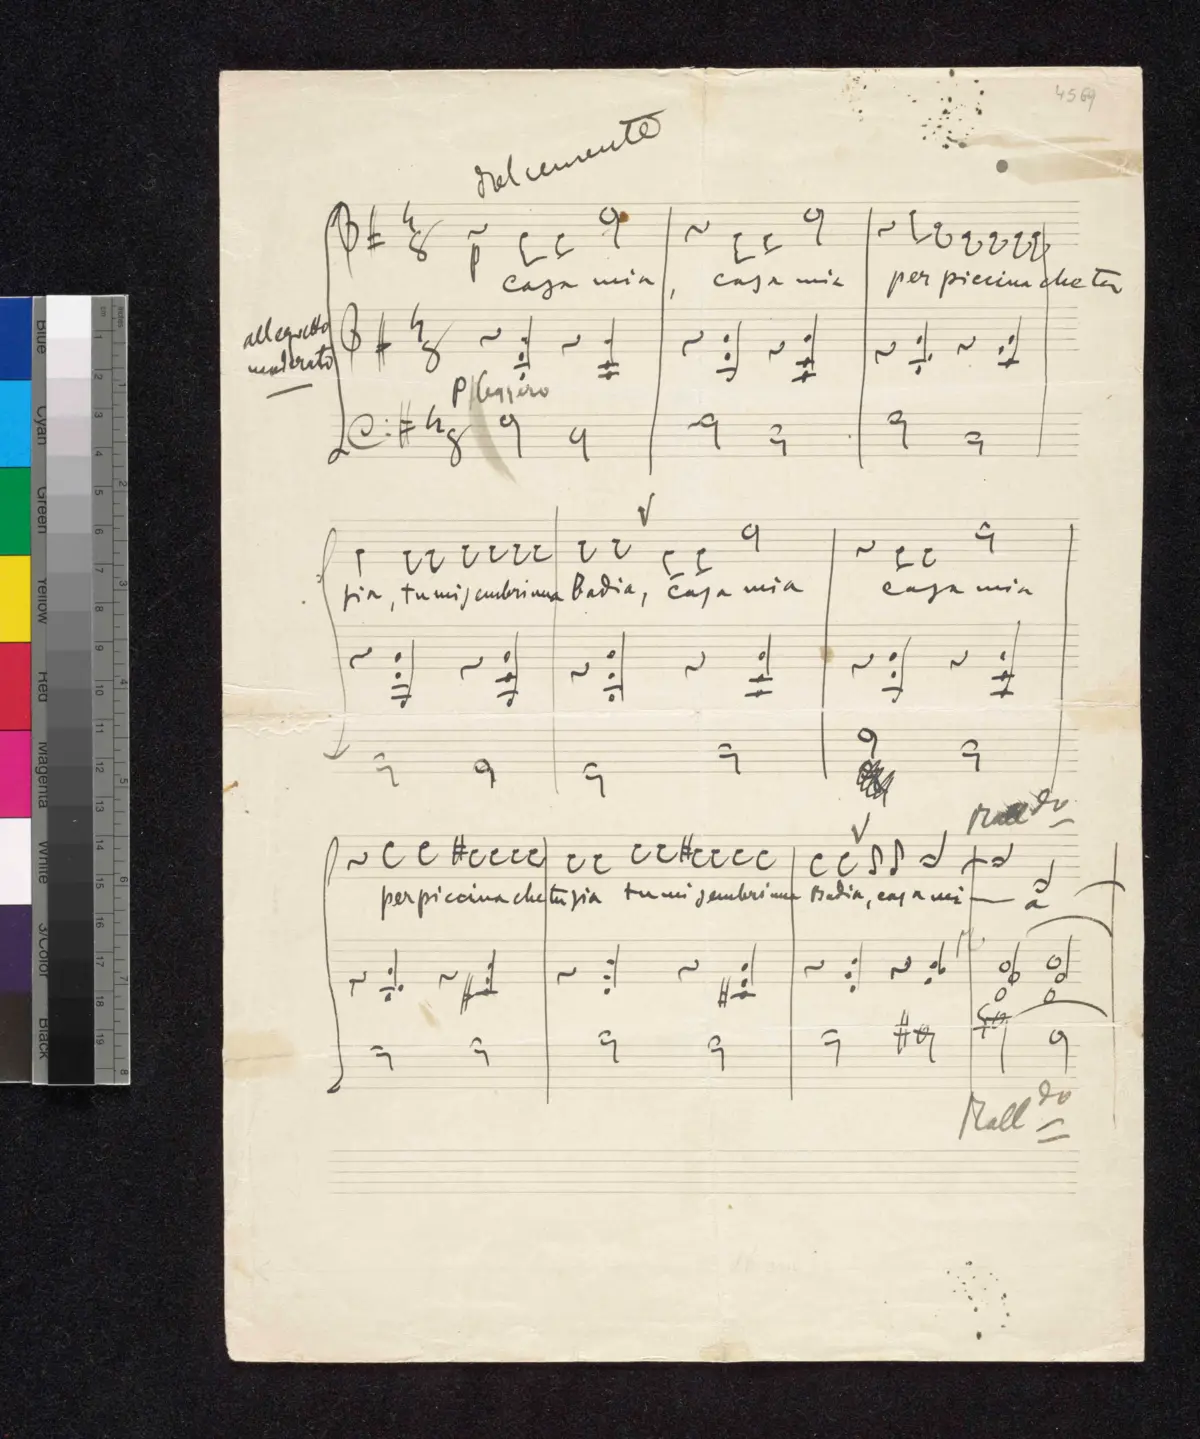 4569
dolcemente
casa mia, casa mia per piccina che tu
allegretto
moderato
p leggero
sia, tu mi sembri una Badia, casa mia casa mia
Rall do
per piccina che tu sia tu mi sembri una Badia, casa mi—a
Rall do
Blue
Cyan
Green
Yellow
Red
Magenta
White
3/Color
Black
cm
inches
1
2
3
4
5
6
7
8
9
10
11
12
13
14
15
16
17
18
19
1
2
3
4
5
6
8